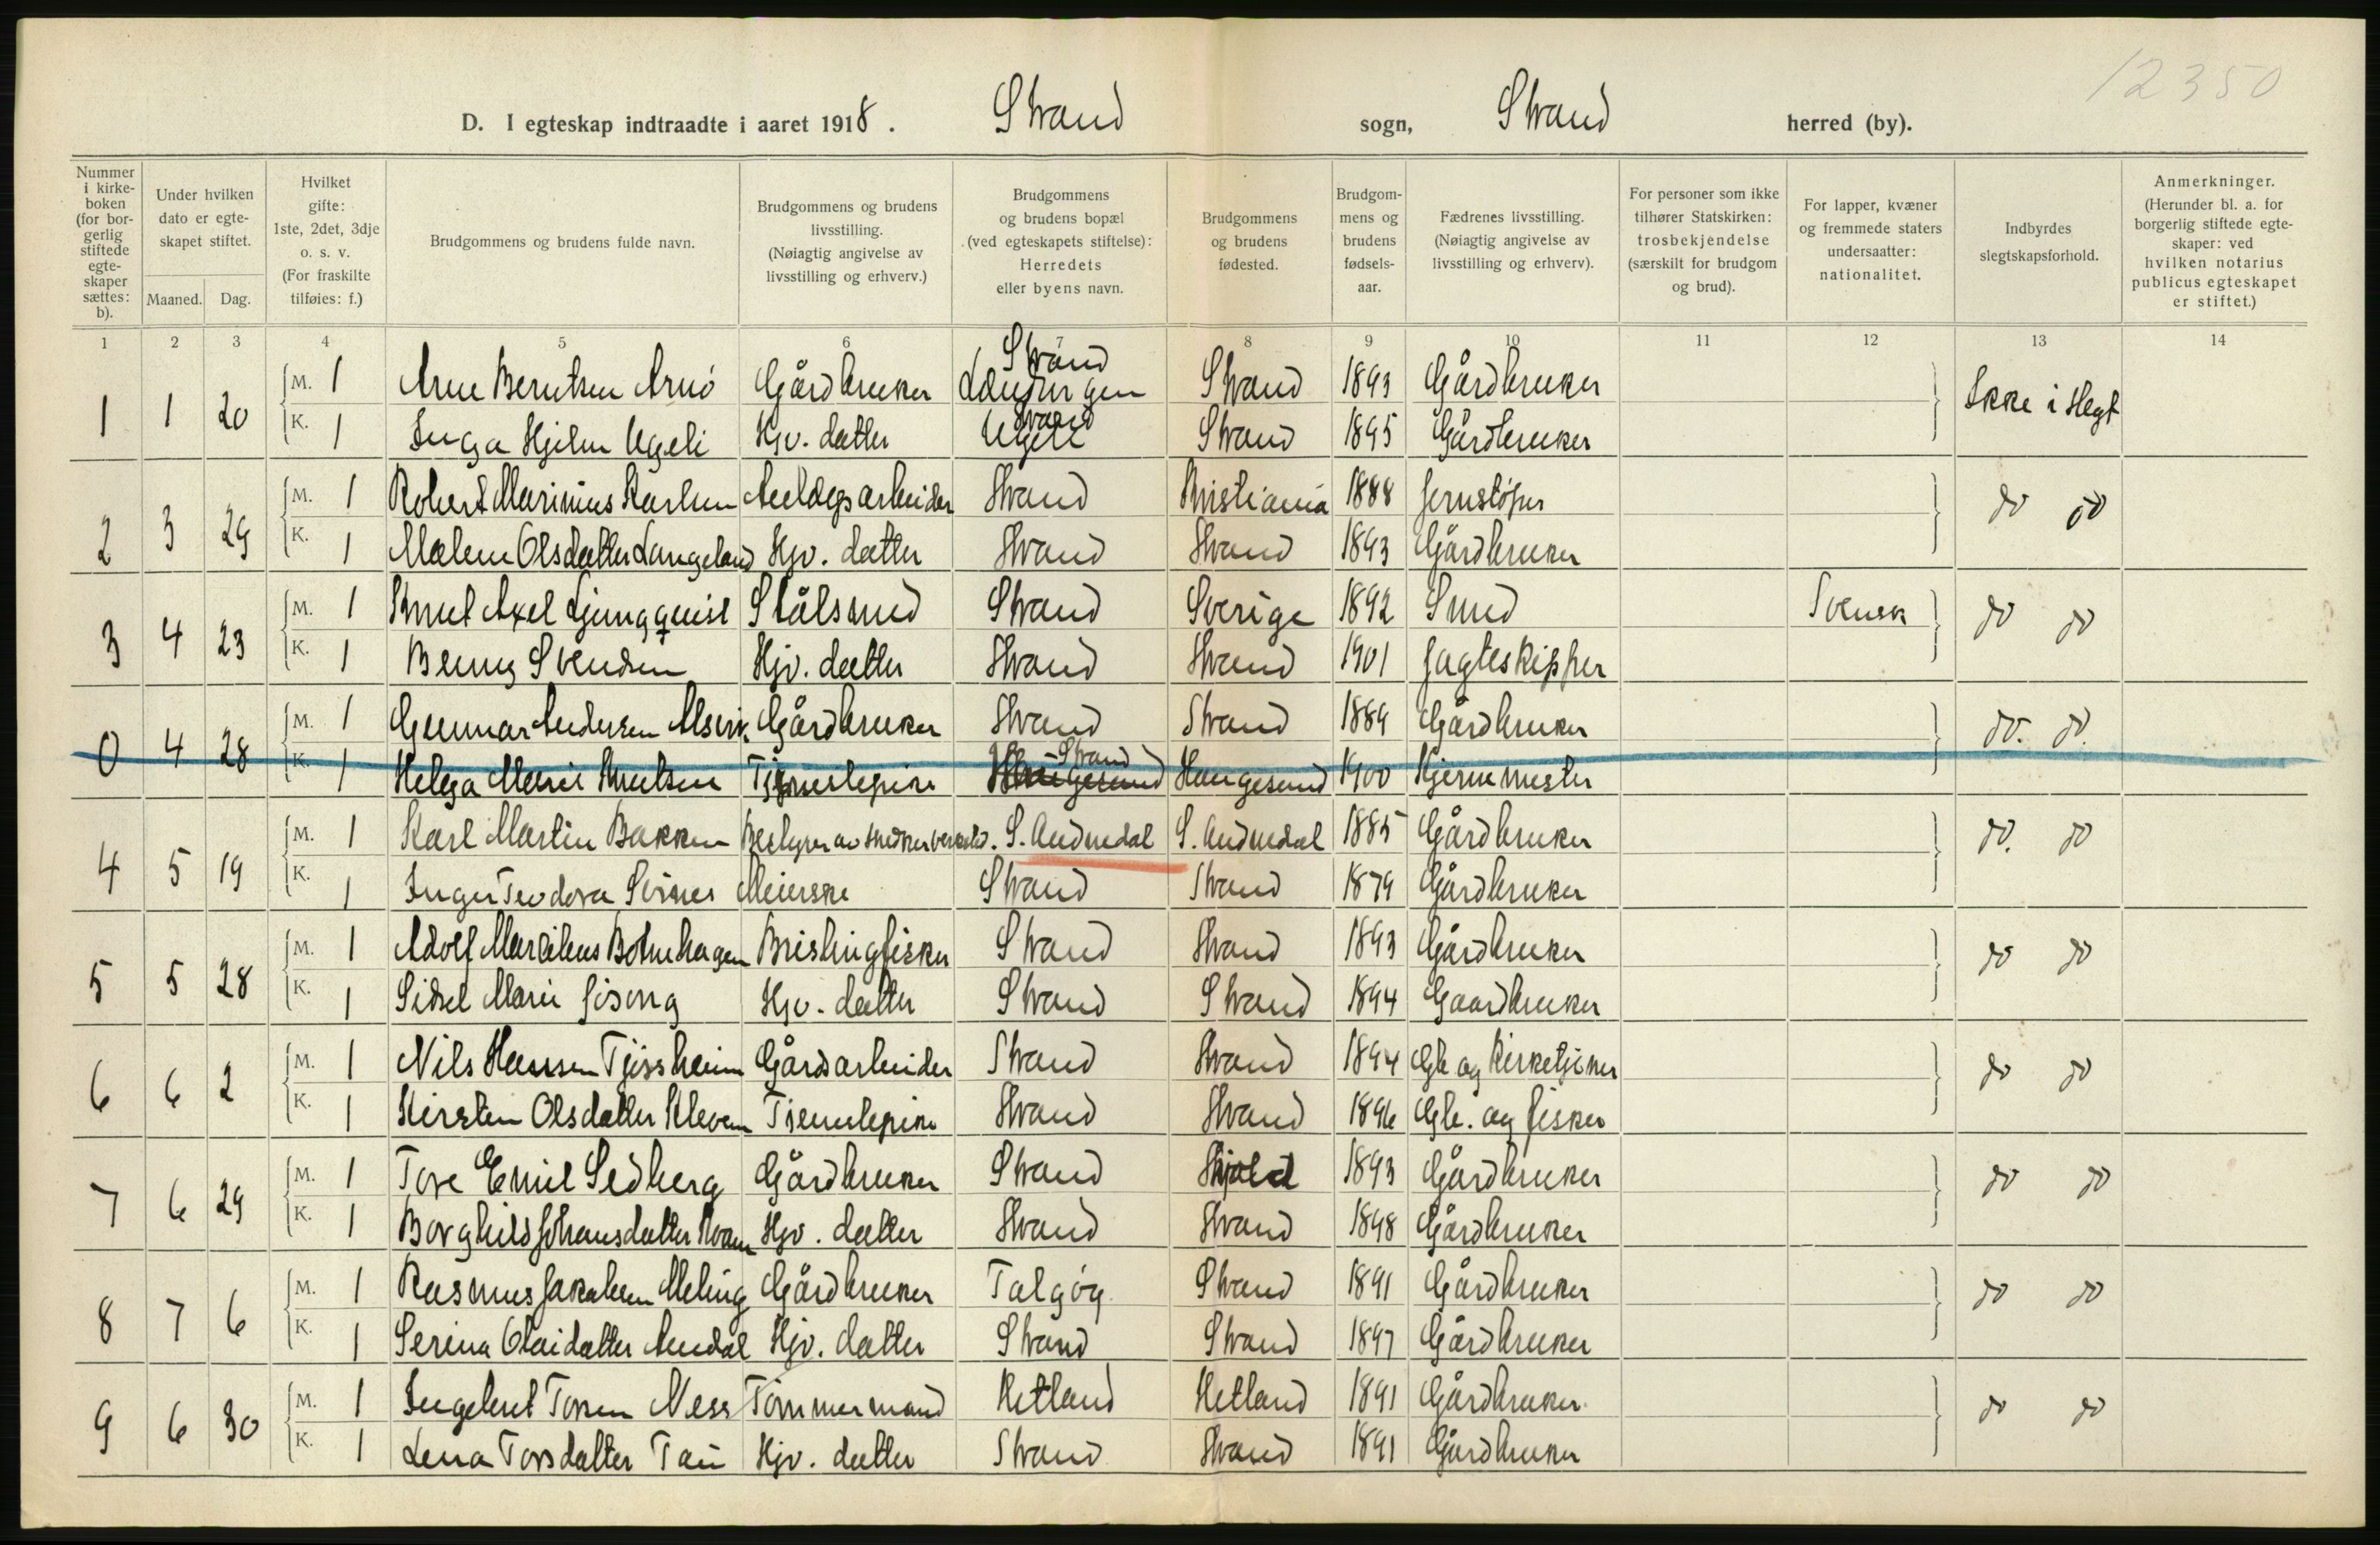 12350
D. I egteskap indtraadte i aaret 1918. Strand sogn, Strand herred (by).
Nummer i kirke- boken (for bor- gerlig stiftede egte- skaper sættes: b).
Under hvilken dato er egte- skapet stiftet.
Maaned. Dag.
Hvilket gifte: 1ste, 2det, 3dje o. s. v. (For fraskilte tilføies: f.)
Brudgommens og brudens fulde navn.
Brudgommens og brudens livsstilling. (Nøiagtig angivelse av livsstilling og erhverv.)
Brudgommens og brudens bopæl (ved egteskapets stiftelse): Herredets eller byens navn.
Brudgommens og brudens fødested.
Brudgom- mens og brudens fødsels- aar.
Fædrenes livsstilling. (Nøiagtig angivelse av livsstilling og erhverv).
For personer som ikke tilhører Statskirken: trosbekjendelse (særskilt for brudgom og brud).
For lapper, kvæner og fremmede staters undersaatter: nationalitet.
Indbyrdes slegtskapsforhold.
Anmerkninger. (Herunder bl. a. for borgerlig stiftede egte- skaper: ved hvilken notarius publicus egteskapet er stiftet.)
1 2 3 4 5 6 7 8 9 10 11 12 13 14
1 1 20 M. 1 Arne Berntsen Arnö Gårdbruker Strand Strand 1893 Gårdbruker Ikke i slegt
K. 1 Inga Hjelm Ugeli Hjv. datter Strand Ugeli Strand 1895 Gårdbruker
2 3 29 M. 1 Robert Marinius Karlsen Anlegsarbeider Strand Kristiania 1888 Jernstöper do do
K. 1 Malene Olsdatter Langeland Hjv. datter Strand Strand 1893 Gårdbruker
3 4 23 M. 1 Knut Axel Ljungquist Stålsmed Strand Sverige 1892 Smed Svensk do do
K. 1 Benny Svendsen Hjv. datter Strand Strand 1901 Jagteskipper
0 4 28 M. 1 Gunnar Andersen Alsvik Gårdbruker Strand Strand 1889 Gårdbruker do. do.
K. 1 Helga Marie Knutsen Tjenestepike Haugesund Strand Haugesund 1900 Hjernemester
4 5 19 M. 1 Karl Martin Bakken Bestyrer av snedkerverksted. S. Audnedal S. Audnedal 1885 Gårdbruker do. do
K. 1 Inger Teodora Sörnes Meierske Strand Strand 1879 Gårdbruker
5 5 28 M. 1 Adolf Marcilius Botnehagen Brislingfisker Strand Strand 1893 Gårdbruker do do
K. 1 Sidsel Marie Jisang Hjv. datter Strand Strand 1894 Gaardbruker
6 6 2 M. 1 Nils Hansen Tjössheim Gårdsarbeider Strand Strand 1894 Gb og Kirketjener do do
K. 1 Kirsten Olsdatter Kleven Tjenestepike Strand Strand 1896 Gb. og fisker
7 6 29 M. 1 Tore Emil Sedberg Gårdbruker Strand Skjold 1893 Gårdbruker do do
K. 1 Borghild Johansdatter Kvam Hjv. datter Strand Strand 1898 Gårdbruker
8 7 6 M. 1 Rasmus Jakobsen Meling Gårdbruker Talgöy Strand 1891 Gårdbruker do do
K. 1 Serina Olaidatter Amdal Hjv. datter Strand Strand 1897 Gårdbruker
9 6 30 M. 1 Ingebret Torsen Ness Tömmermand Hetland Hetland 1891 Gårdbruker do do
K. 1 Lena Torsdatter Tau Hjv. datter Strand Strand 1891 Gårdbruker